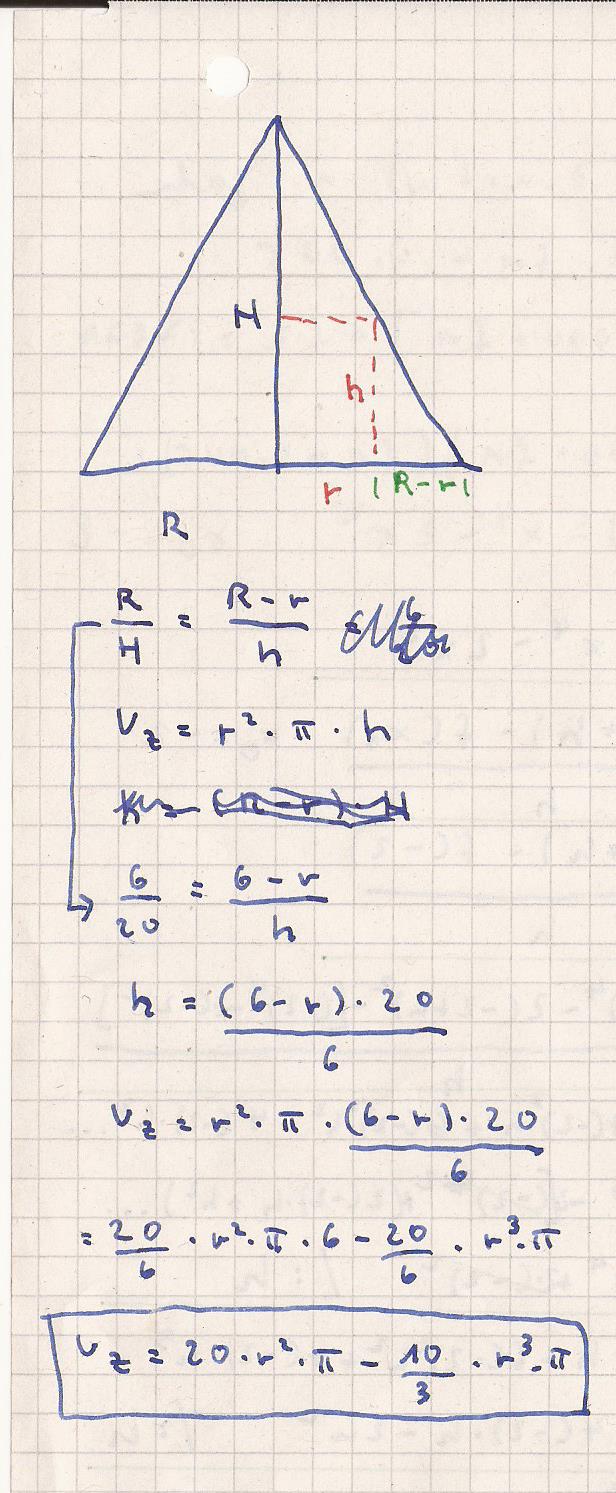 H
h
r | R-r |
R
R/H = (R-r)/h
V_z = r² · π · h
6/20 = (6-r)/h
h = ((6-r) · 20)/6
V_z = r² · π · ((6-r) · 20)/6
= 20/6 · r² · π · 6 - 20/6 · r³ · π
V_z = 20 · r² · π - 10/3 · r³ · π